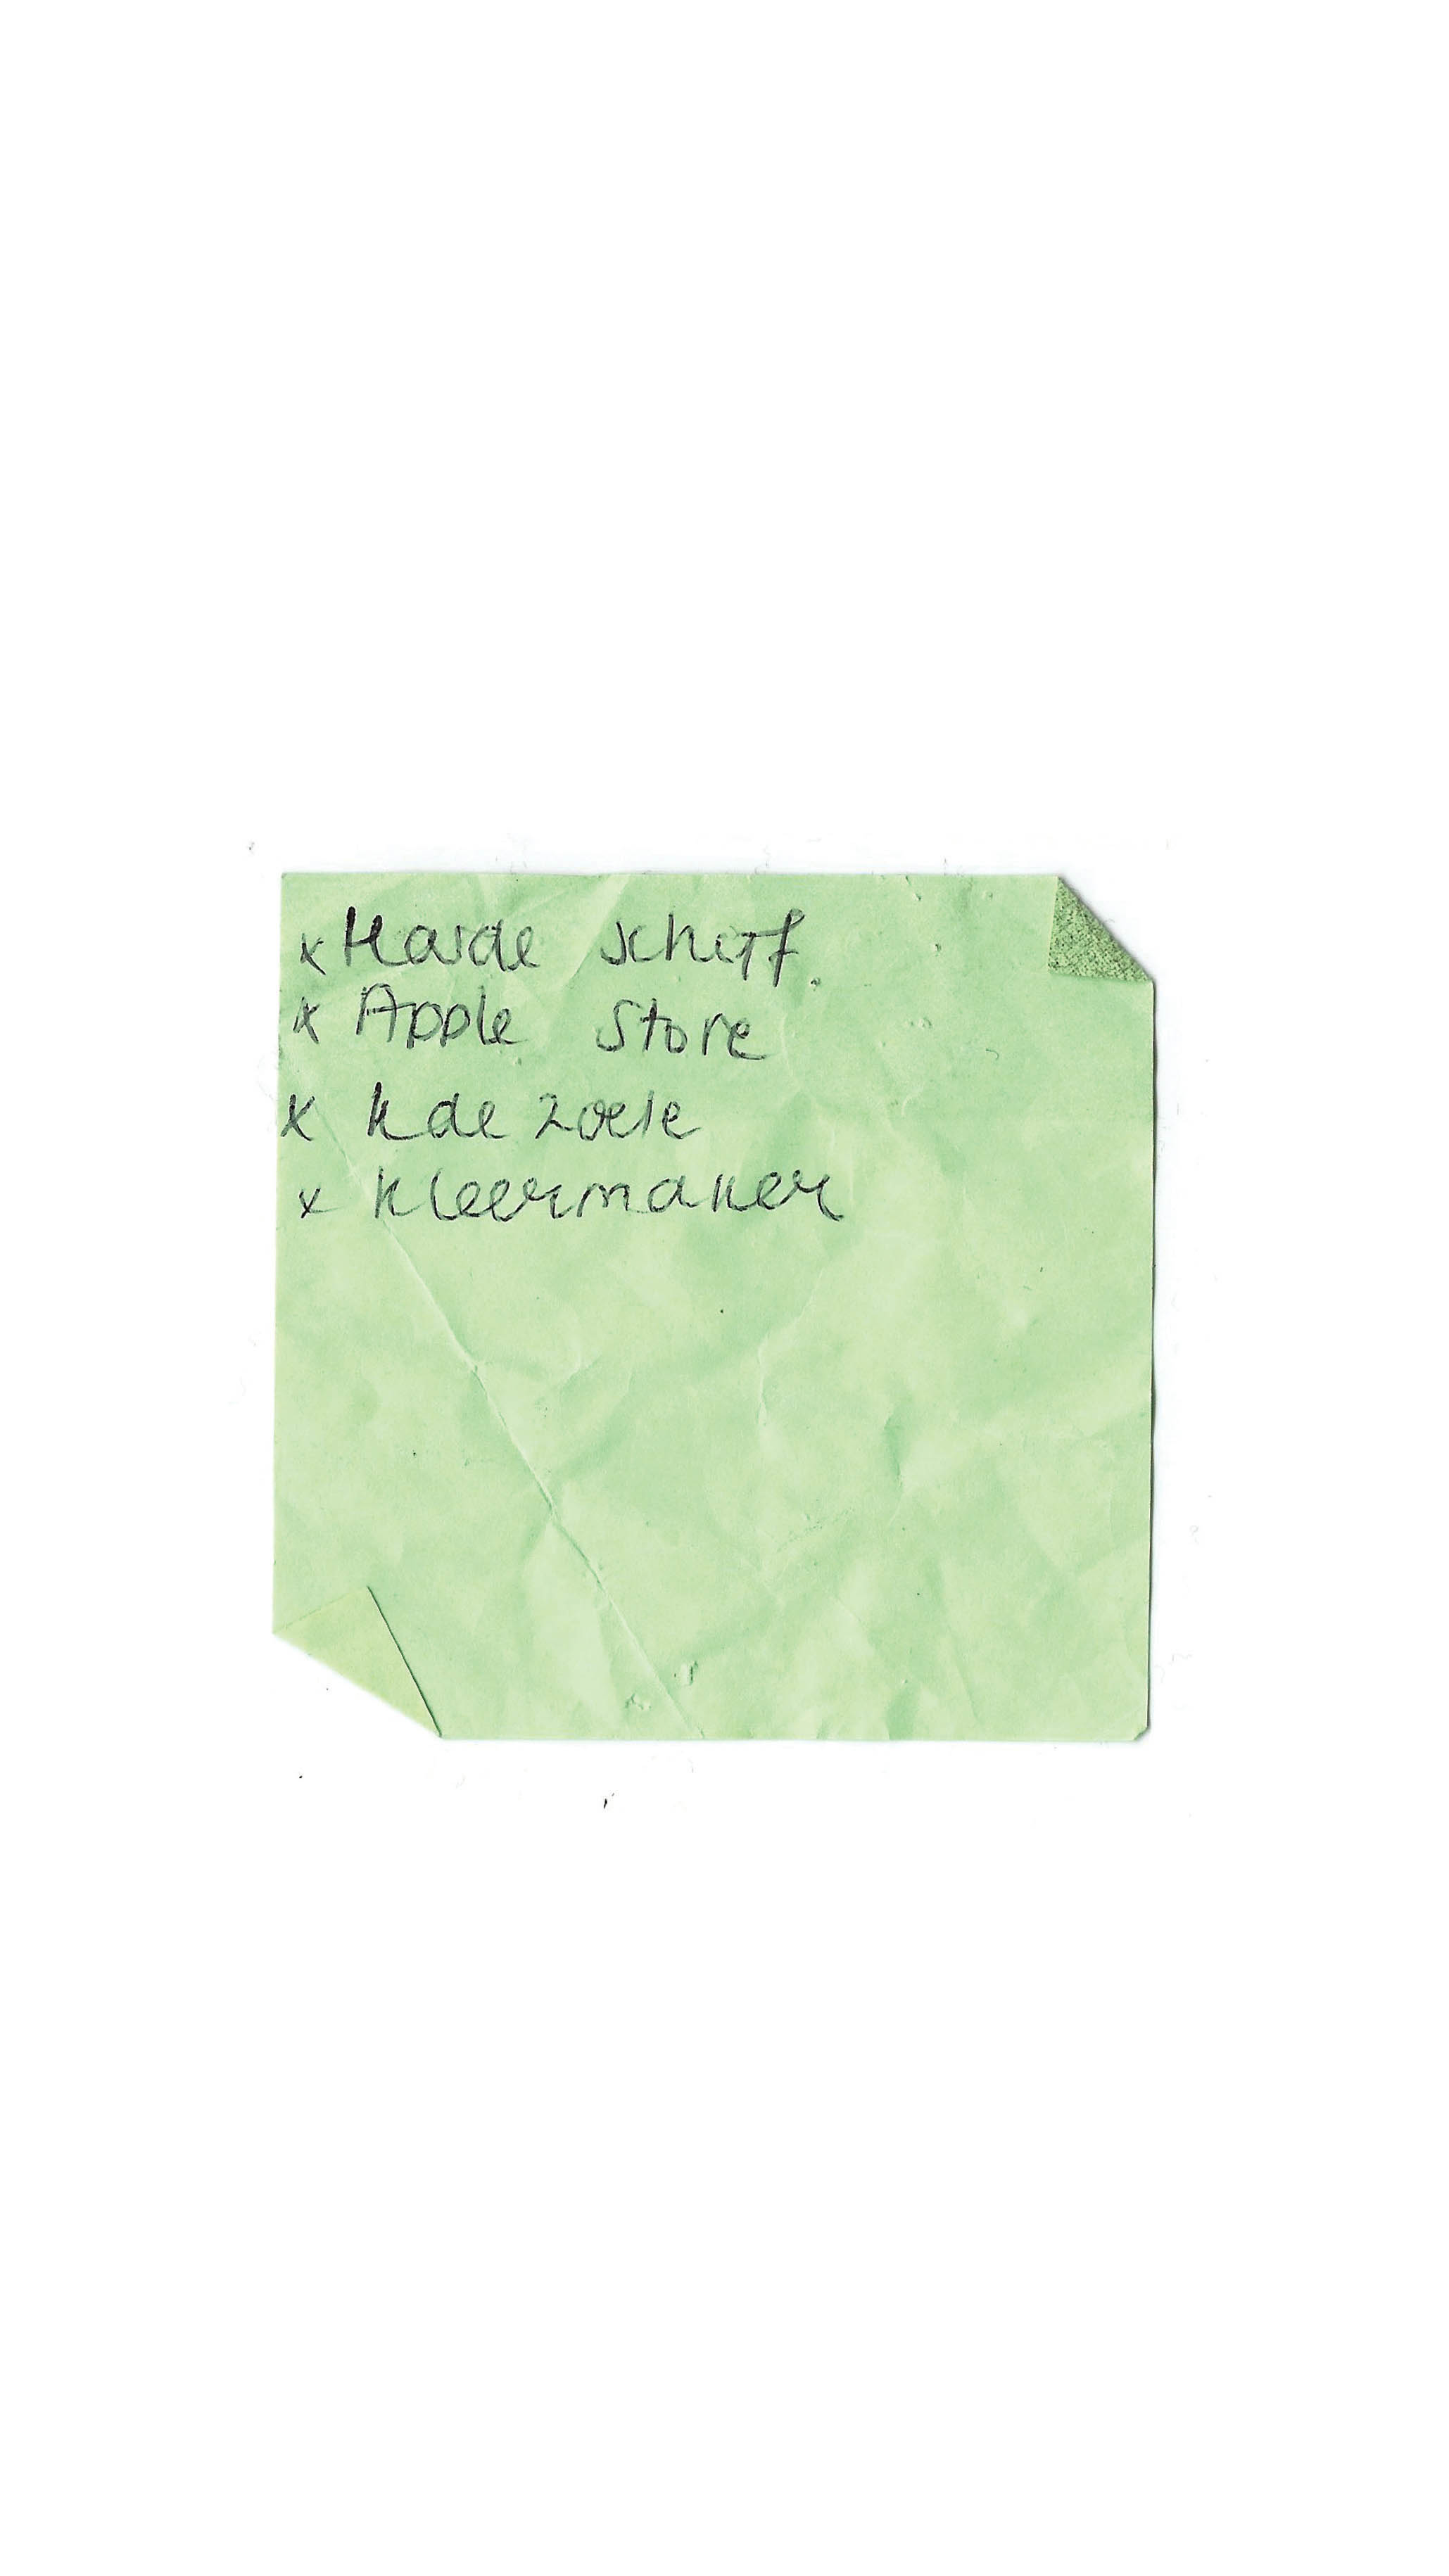 x Harde schijf.
x Apple Store
x kdezoele
x kleermaker